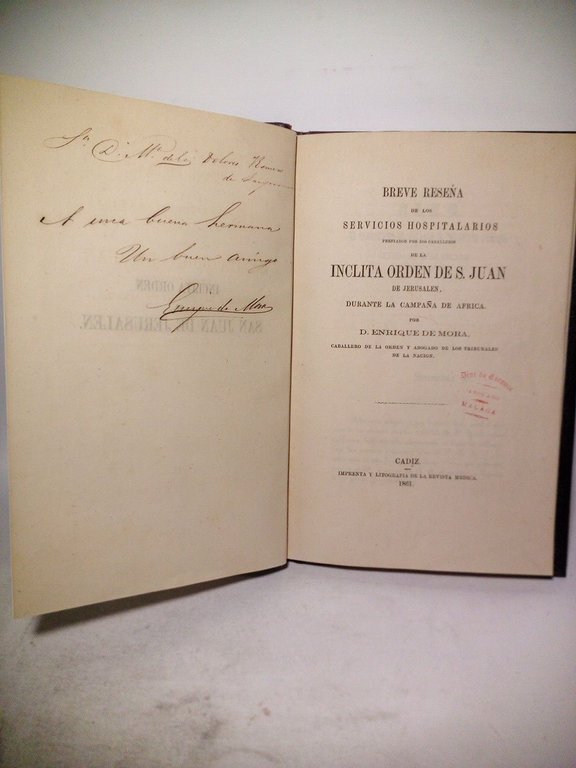 Sra. Da. Ma. de los Dolores
de
A una buena hermana
Un buen amigo
Enrique de Mora
BREVE RESEÑA
DE LOS
SERVICIOS HOSPITALARIOS
PRESTADOS POR LOS CABALLEROS
DE LA
INCLITA ORDEN DE S. JUAN
DE JERUSALEN,
DURANTE LA CAMPAÑA DE AFRICA.
POR
D. ENRIQUE DE MORA,
CABALLERO DE LA ORDEN Y ABOGADO DE LOS TRIBUNALES
DE LA NACION.
MALAGA
CADIZ.
IMPRENTA Y LITOGRAFIA DE LA REVISTA MEDICA.
1861.